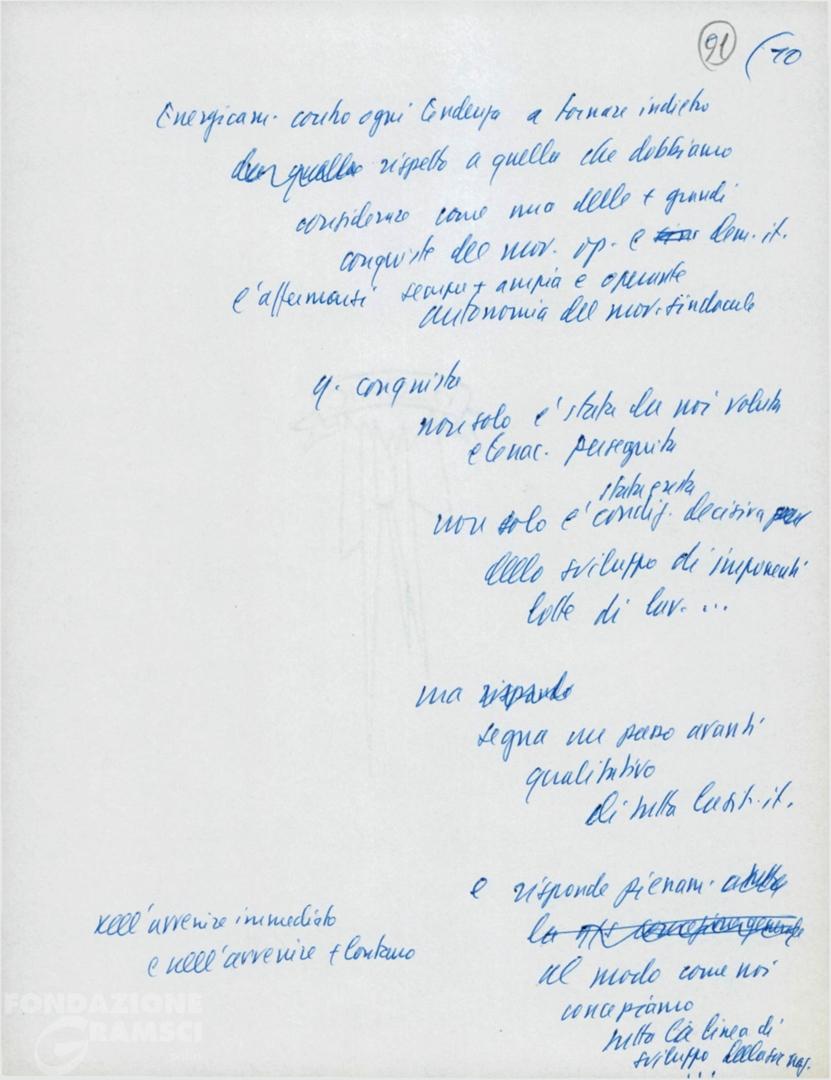 91 (10
Energicam. contro ogni tendenza a tornare indietro
rispetto a quella che dobbiamo
considerare come una delle + grandi
conquiste del mov. op. e dem. it.
l'affermarsi sempre + ampia e operante
autonomia del mov. sindacale
q. conquista
non solo è stata da noi voluta
e tenac. perseguita
stata questa
non solo è condiz. decisiva
dello sviluppo di imponenti
lotte di lav. ...
ma risponde
segna un passo avanti
qualitativo
di tutta la sit. it.
e risponde pienam. a tutta
la ns concezione generale
al modo come noi
concepiamo
tutta la linea di
sviluppo della
...
nell'avvenire immediato
e nell'avvenire + lontano
FONDAZIONE
GRAMSCI